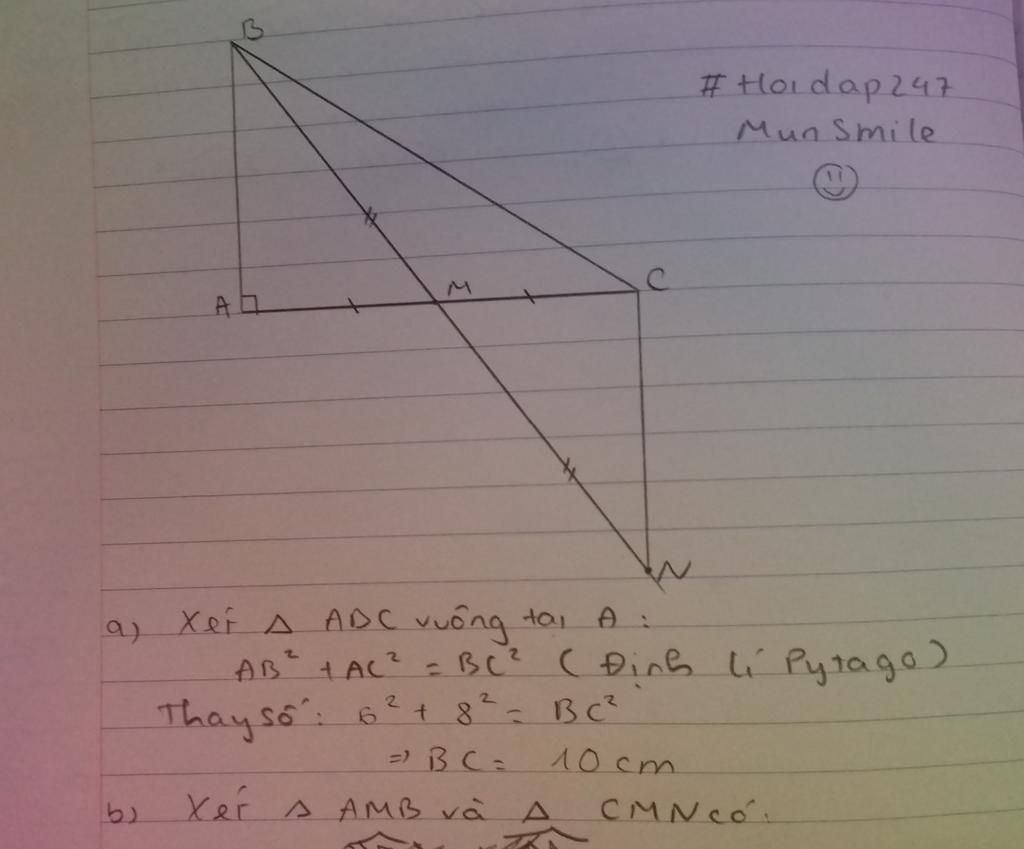 B
# Hoidap247
MunSmile
A
M
C
N
a) Xét △ ABC vuông tại A :
AB² + AC² = BC² ( Định lí Pytago )
Thay số : 6² + 8² = BC²
=> BC = 10 cm
b) Xét △ AMB và △ CMN có :